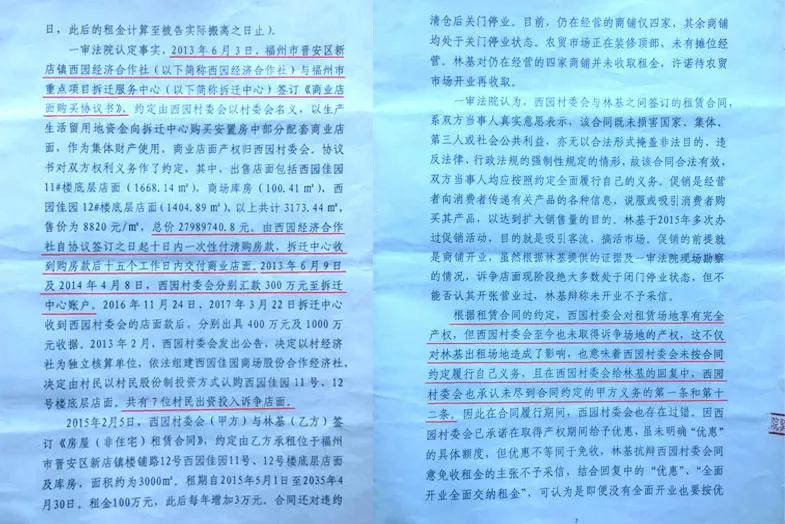 日，此后的租金计算至被告实际搬离之日止）。
一审法院认定事实，2013年6月3日，福州市晋安区新
店镇西园经济合作社（以下简称西园经济合作社）与福州市
重点项目拆迁服务中心（以下简称拆迁中心）签订《商业店
面购买协议书》，约定由西园村委会以村委会名义，以生产
生活留用地资金向拆迁中心购买安置房中部分配套商业店
面，作为集体财产使用，商业店面产权归西园村委会。协议
书对双方权利义务作了约定，其中，出售店面包括西园佳园
11#楼底层店面（1668.14㎡），商场库房（100.41㎡），西
园佳园12#楼底层店面（1404.89㎡），以上共计3173.44㎡，
售价为8820元/㎡，总价27989740.8元，由西园经济合作
社自协议签订之日起十日内一次性付清购房款，拆迁中心收
到购房款后十五个工作日内交付商业店面。2013年6月9日
及2014年4月8日，西园村委会分别汇款300万元至拆迁
中心账户。2016年11月24日、2017年3月22日拆迁中心
收到西园村委会的店面款后，分别出具400万元及1000万
元收据。2013年2月，西园村委会发出公告，决定以村经济
社为独立核算单位，依法组建西园佳园商场股份合作经济社，
决定由村民以村民股份制投资方式认购西园佳园11号、12
号楼底层店面。共有7位村民出资投入诉争店面。
2015年2月5日，西园村委会（甲方）与林基（乙方）签
订《房屋（非住宅）租赁合同》，约定由乙方承租位于福州
市晋安区新店镇楼铺路12号西园佳园11号、12号楼底层店面
及库房，面积约为3000㎡。租期自2015年5月1日至2035年4
月30日。租金100万元，此后每年增加3万元。合同还对违约
清仓后关门停业。目前，仍在经营的商铺仅四家，其余商铺
均处于关门停业状态。农贸市场正在装修顶部，未有摊位经
营。林基对仍在经营的四家商铺并未收取租金，许诺待农贸
市场开业再收取。
一审法院认为，西园村委会与林基之间签订的租赁合同，
系双方当事人真实意思表示，该合同既未损害国家、集体、
第三人或社会公共利益，亦无以合法形式掩盖非法目的、违
反法律、行政法规的强制性规定的情形，故该合同合法有效，
双方当事人均应按照约定全面履行自己的义务。促销是经营
者向消费者传递有关产品的各种信息，说服或吸引消费者购
买其产品，以达到扩大销售量的目的。林基于2015年多次办
过促销活动，目的就是吸引客流，搞活市场。促销的前提就
是商铺开业，虽然根据林基提供的证据及一审法院现场勘察
的情况，诉争店面现阶段绝大多数处于闭门停业状态，但不
能否认其开张营业过，林基辩称未开业不予采信。
根据租赁合同的约定，西园村委会对租赁场地享有完全
产权，但西园村委会至今也未取得诉争场地的产权，这不仅
对林基出租场地造成了影响，也意味着西园村委会未按合同
约定履行自己义务，且在西园村委会给林基的回复中，西园
村委会也承认未尽到合同约定的甲方义务的第一条和第十
二条。因此在合同履行期间，西园村委会也存在过错。因西
园村委会已承诺在取得产权期间给予优惠，虽未明确“优惠”
的具体额度，但优惠不等同于免收，林基抗辩西园村委会同
意免收租金的主张不予采信，结合回复中的“优惠”、“全面
开业全面交纳租金”，可认为是即便没有全面开业也要按优
7